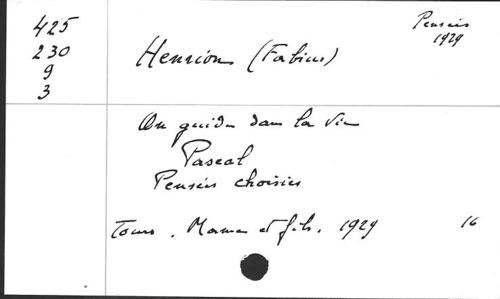 425
230
9
3
Pensées
1929
Henrion (Fabius)
Un guide dans la vie
Pascal
Pensées choisies
Tours. Mame et fils. 1929 16